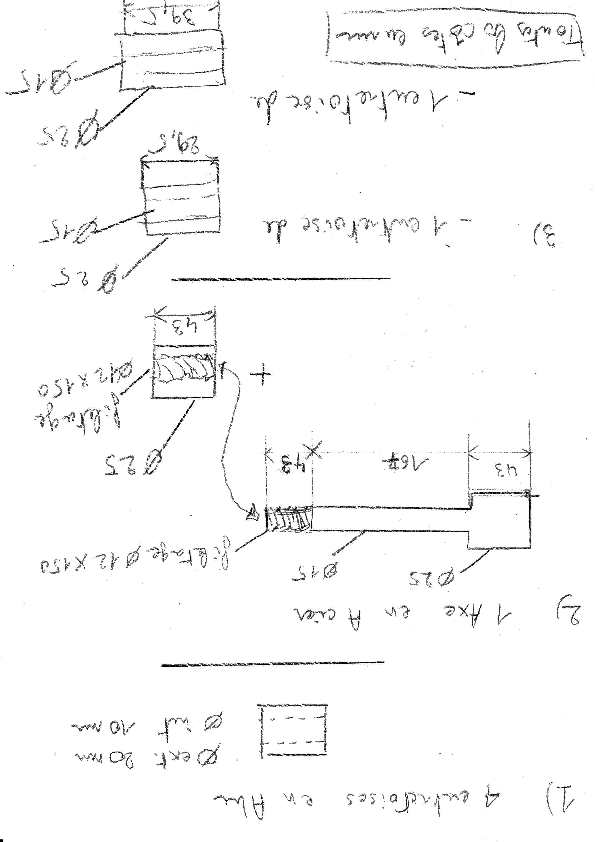 1) 4 entretoises en Alu
Ø ext. 20 mm
Ø int 10 mm
2) 1 Axe en Acier
Ø25
Ø15
filetage Ø12 x 150
43
167
43
Ø25
filetage
Ø12 x 150
+
43
3) - 1 entretoise de
Ø25
Ø15
29,5
- 1 entretoise de
Ø25
Ø15
39,5
Toutes les côtes en mm